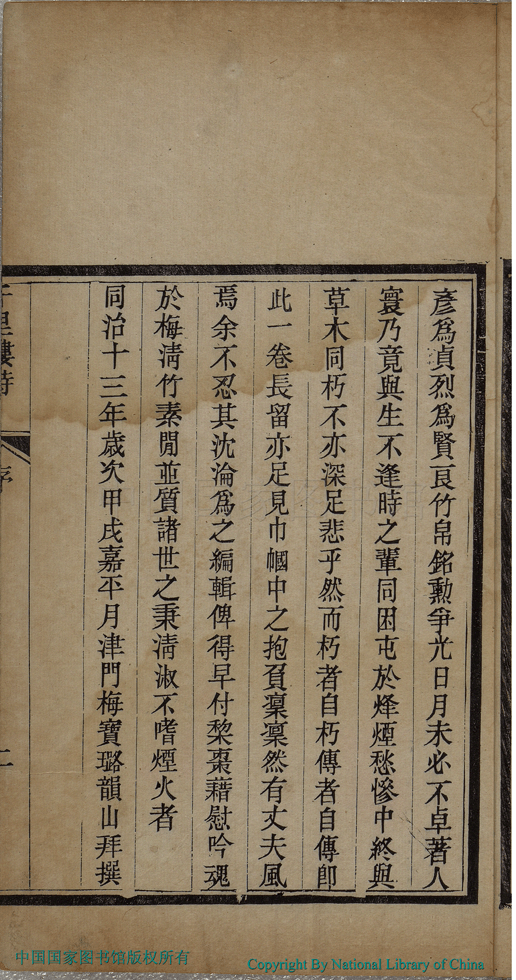 彥爲貞烈爲賢良竹帛銘勳爭光日月未必不卓著人
寰乃竟與生不逢時之輩同困屯於烽煙愁慘中終與
草木同朽不亦深足悲乎然而朽者自朽傳者自傳卽
此一卷長留亦足見巾幗中之抱負稟稟然有丈夫風
焉余不忍其沈淪爲之編輯俾得早付棃棗藉慰吟魂
於梅淸竹素閒並質諸世之秉淸淑不嗜煙火者
同治十三年歲次甲戌嘉平月津門梅寶璐韻山拜撰
里樓詩
序
二
中国国家图书馆版权所有
Copyright By National Library of China